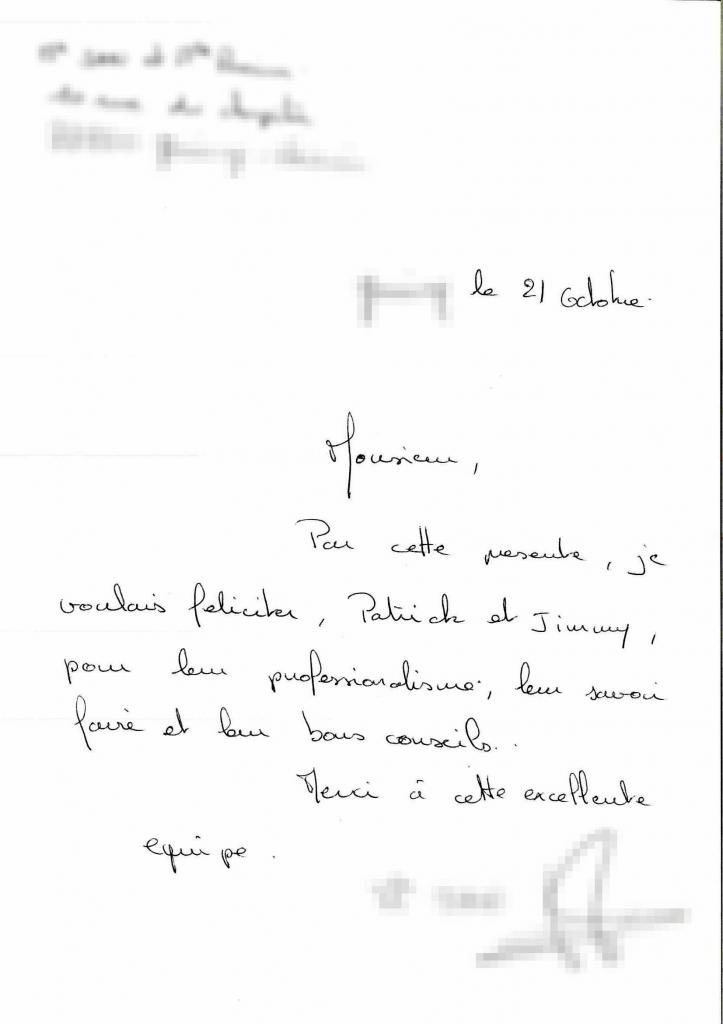 le 21 Octobre.
Monsieur,
Par cette presente, je
voulais feliciter, Patrick et Jimmy,
pour leur professionalisme, leur savoir
faire et leur bons conseils..
Merci à cette excellente
equipe.